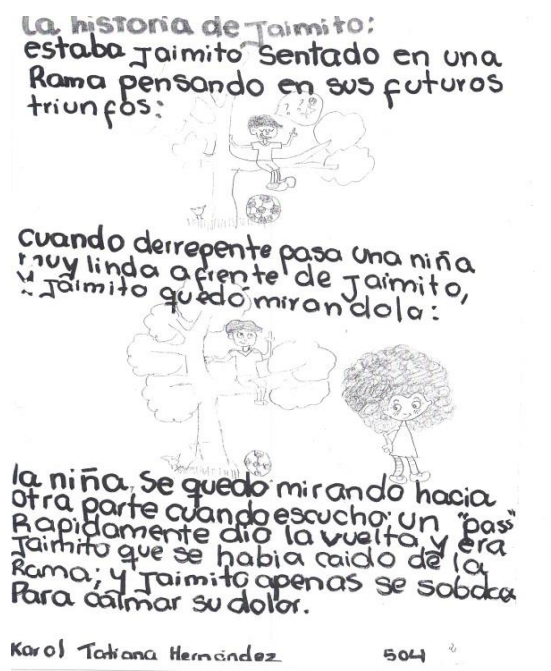 La historia de Jaimito:
estaba Jaimito sentado en una
Rama pensando en sus futuros
triunfos:
? ? ?
cuando derrepente pasa una niña
muy linda afrente de Jaimito,
y Jaimito quedó mirandola:
la niña se quedo mirando hacia
otra parte cuando escucho: un "pass"
Rapidamente dio la vuelta y era
Jaimito que se habia caido de la
Rama; y Jaimito apenas se sobaba
Para calmar su dolor.
Karol Tatiana Hernández 504